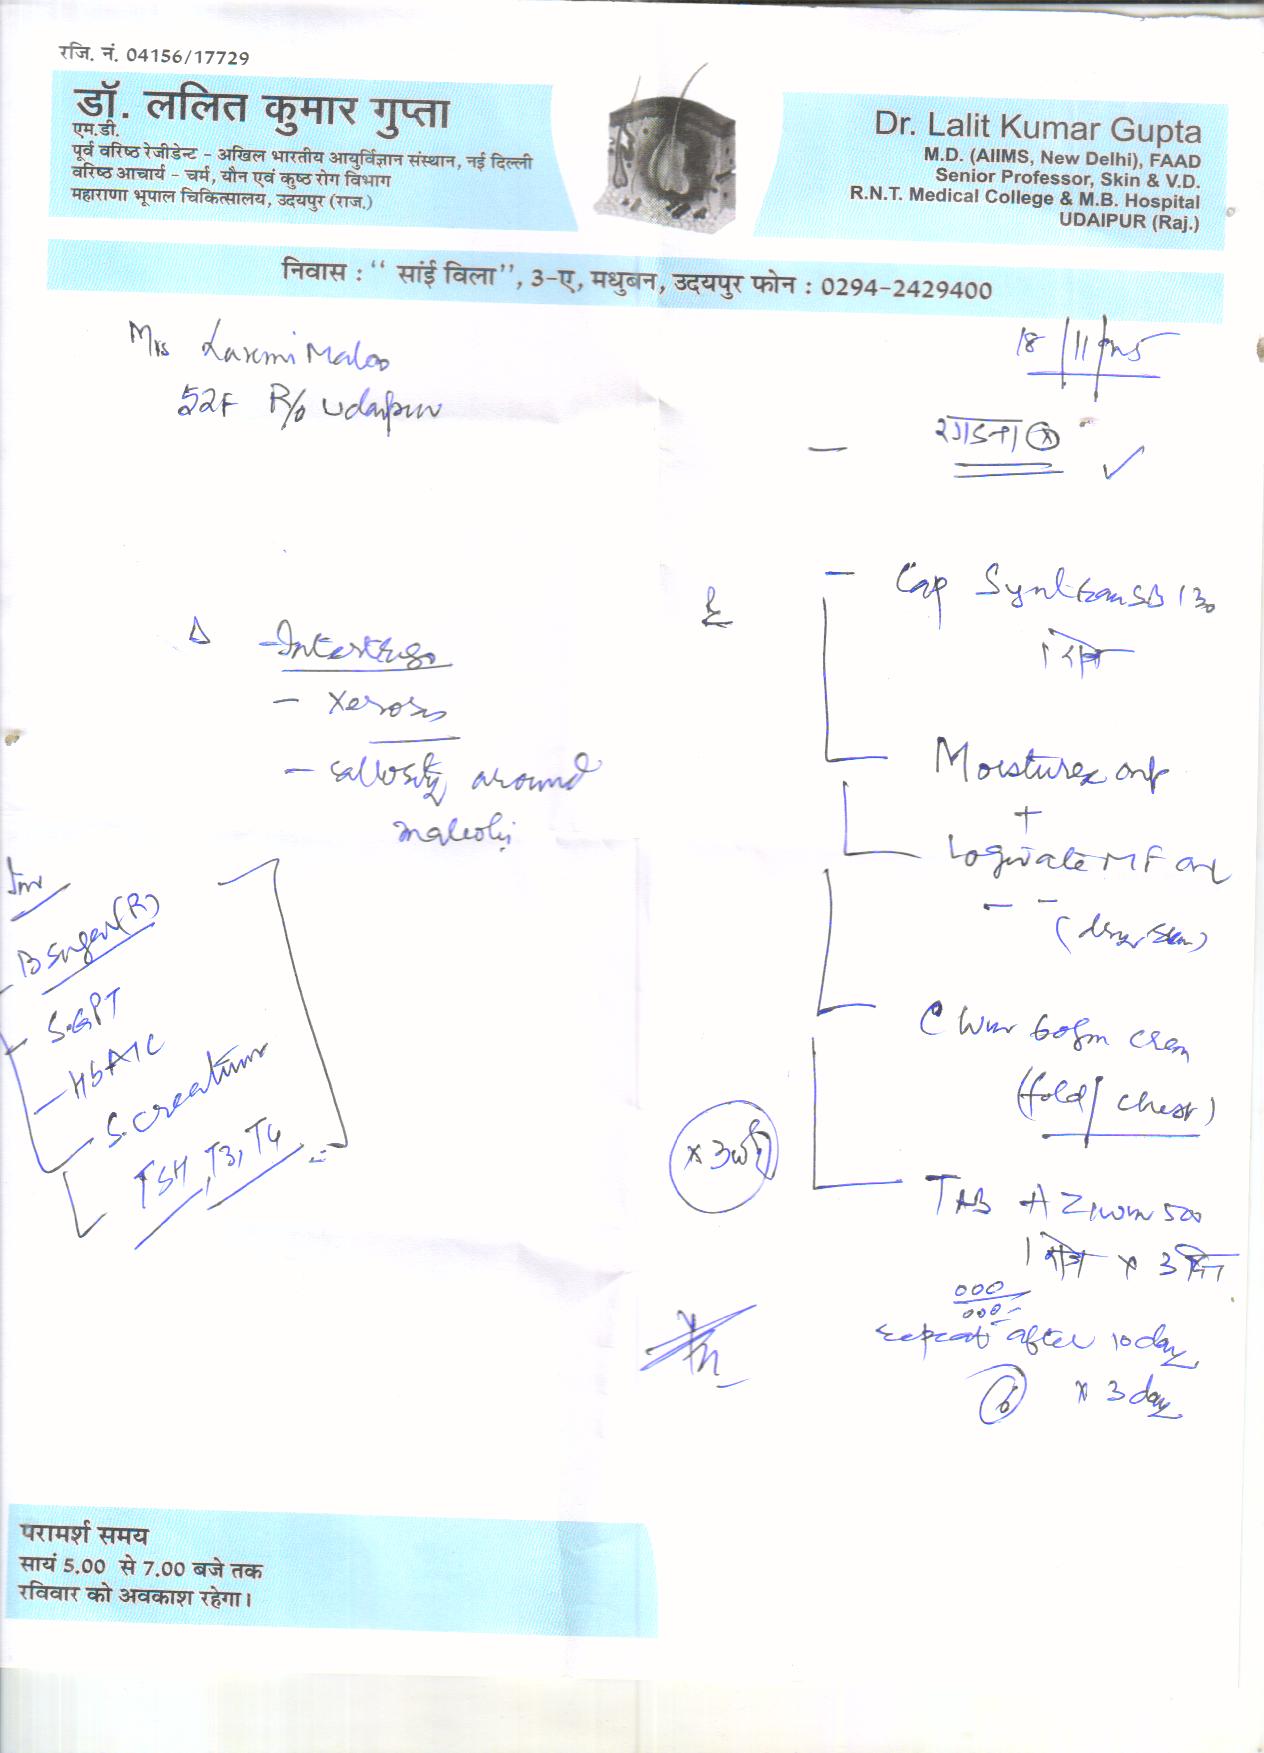 रजि. नं. 04156/17729
डॉ. ललित कुमार गुप्ता
एम.डी.
पूर्व वरिष्ठ रेजीडेन्ट – अखिल भारतीय आयुर्विज्ञान संस्थान, नई दिल्ली
वरिष्ठ आचार्य – चर्म, यौन एवं कुष्ठ रोग विभाग
महाराणा भूपाल चिकित्सालय, उदयपुर (राज.)
Dr. Lalit Kumar Gupta
M.D. (AIIMS, New Delhi), FAAD
Senior Professor, Skin & V.D.
R.N.T. Medical College & M.B. Hospital
UDAIPUR (Raj.)
निवास : “ सांई विला”, ३-ए, मधुबन, उदयपुर फोन : 0294-2429400
Mrs Laxmi Maloo
52F R/o Udaipur
18/11/
रगडना
Δ - Intertrigo
- Xerosis
- callosity around
malleoli
- Cap 130
1 रोज
Moisturex
+
Logivate MF
C 60gm
(fold/chest)
x 3
TAB 500
1 रोज x 3 दिन
repeat after 10 day
6 x 3 day
Inv
B sugar (R)
- S.GPT
- HbA1C
- S. creatinine
TSH, T3, T4
परामर्श समय
सायं 5.00 से 7.00 बजे तक
रविवार को अवकाश रहेगा।